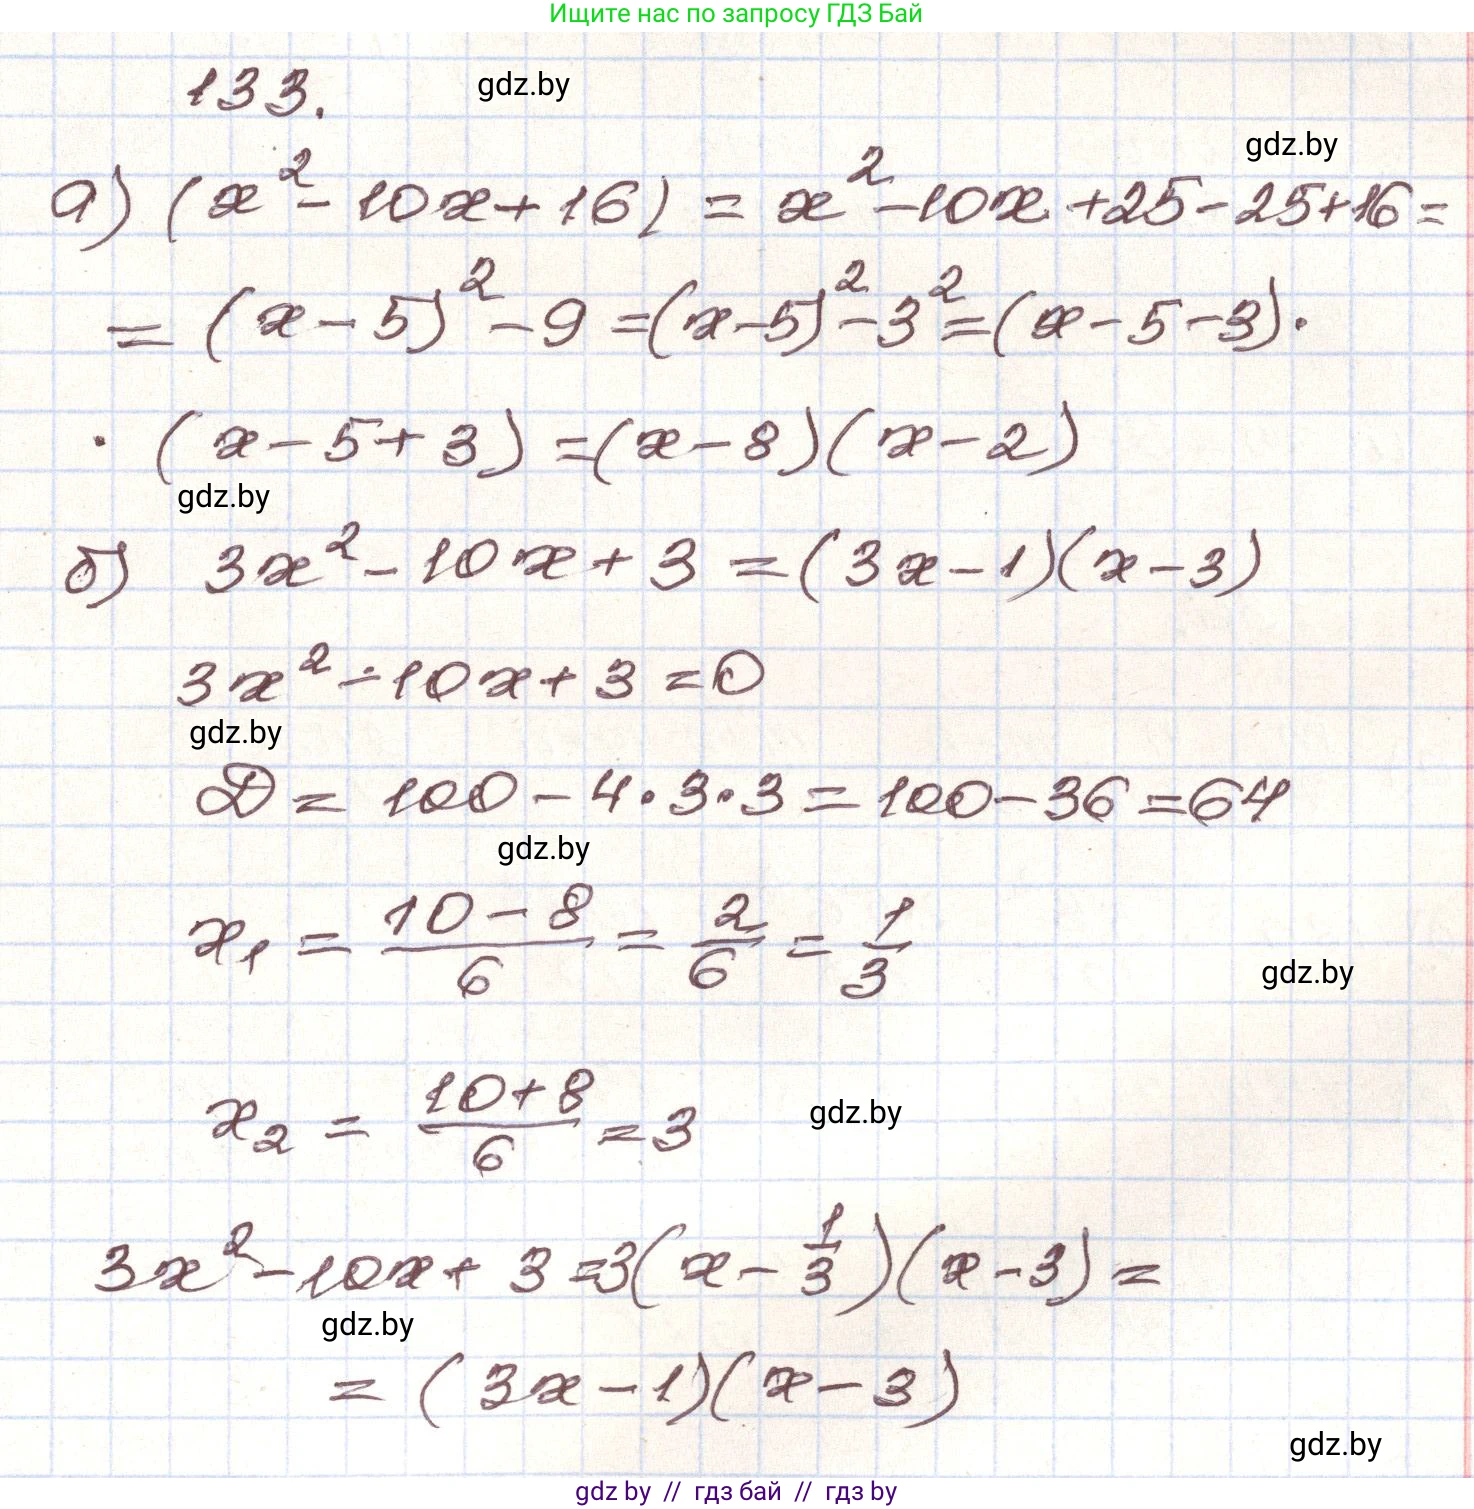 Ищите нас по запросу ГДЗ Бай
133.
gdz.by
gdz.by
а) (x² - 10x + 16) = x² - 10x + 25 - 25 + 16 =
= (x - 5)² - 9 = (x - 5)² - 3² = (x - 5 - 3) ·
· (x - 5 + 3) = (x - 8)(x - 2)
gdz.by
б) 3x² - 10x + 3 = (3x - 1)(x - 3)
3x² - 10x + 3 = 0
gdz.by
D = 100 - 4 · 3 · 3 = 100 - 36 = 64
gdz.by
x₁ = (10 - 8)/6 = 2/6 = 1/3
gdz.by
x₂ = (10 + 8)/6 = 3
gdz.by
3x² - 10x + 3 = 3(x - 1/3)(x - 3) =
gdz.by
= (3x - 1)(x - 3)
gdz.by
gdz by // гдз бай // гдз by